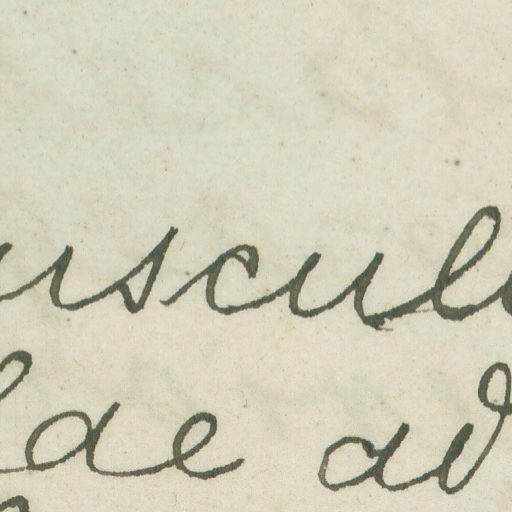 uscul
lae ad